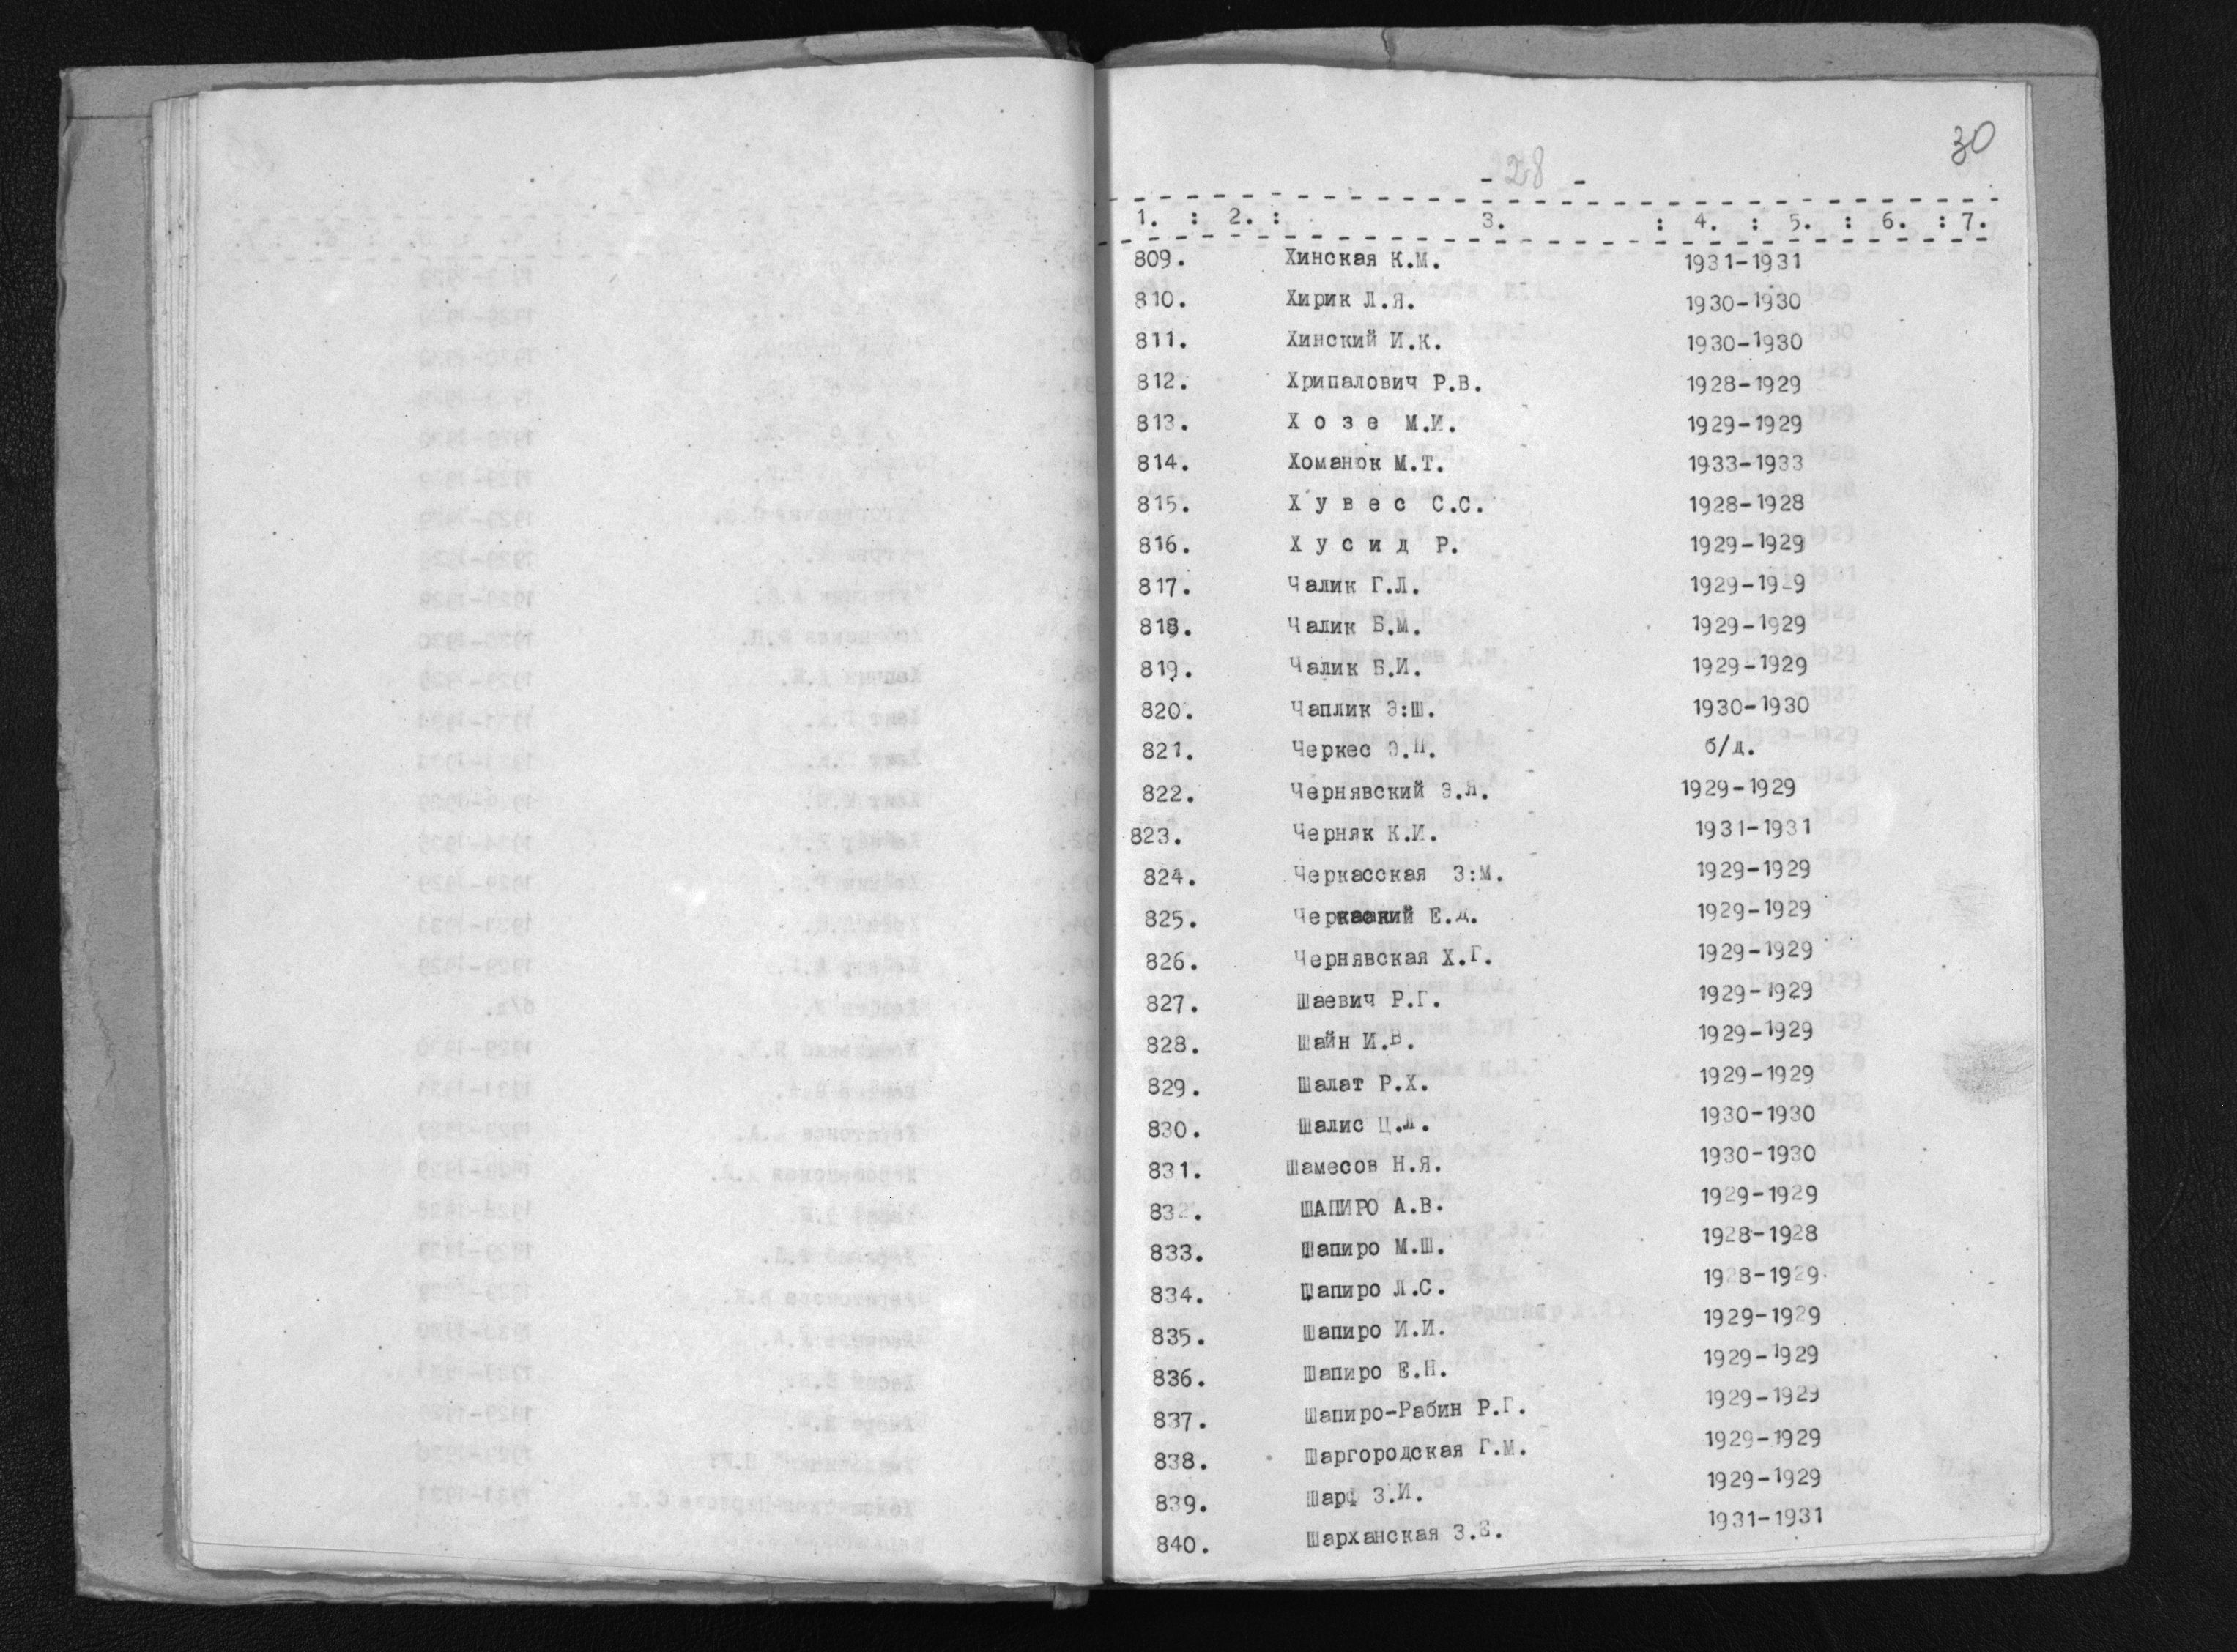 30
- 28 -
1. : 2. : 3. : 4. : 5. : 6. : 7.
809. Хинская К.М. 1931-1931
810. Хирик Л.Я. 1930-1930
811. Хинский И.К. 1930-1930
812. Хрипалович Р.В. 1928-1929
813. Х о з е М.И. 1929-1929
814. Хоманюк М.Т. 1933-1933
815. Х у в е с С.С. 1928-1928
816. Х у с и д Р. 1929-1929
817. Чалик Г.Л. 1929-1929
818. Чалик Б.М. 1929-1929
819. Чалик Б.И. 1929-1929
820. Чаплик Э:Ш. 1930-1930
821. Черкес Э.П. б/д.
822. Чернявский Э.Я. 1929-1929
823. Черняк К.И. 1931-1931
824. Черкасская З:М. 1929-1929
825. Е.Д. 1929-1929
826. Чернявская Х.Г. 1929-1929
827. Шаевич Р.Г. 1929-1929
828. Шайн И.В. 1929-1929
829. Шалат Р.Х. 1929-1929
830. Шалис Ц.Л. 1930-1930
831. Шамесов Н.Я. 1930-1930
832. ШАПИРО А.В. 1929-1929
833. Шапиро М.Ш. 1928-1928
834. Шапиро Л.С. 1928-1929
835. Шапиро И.И. 1929-1929
836. Шапиро Е.Н. 1929-1929
837. Шапиро-Рабин Р.Г. 1929-1929
838. Шаргородская Г.М. 1929-1929
839. Шарф З.И. 1929-1929
840. Шарханская З.Е. 1931-1931